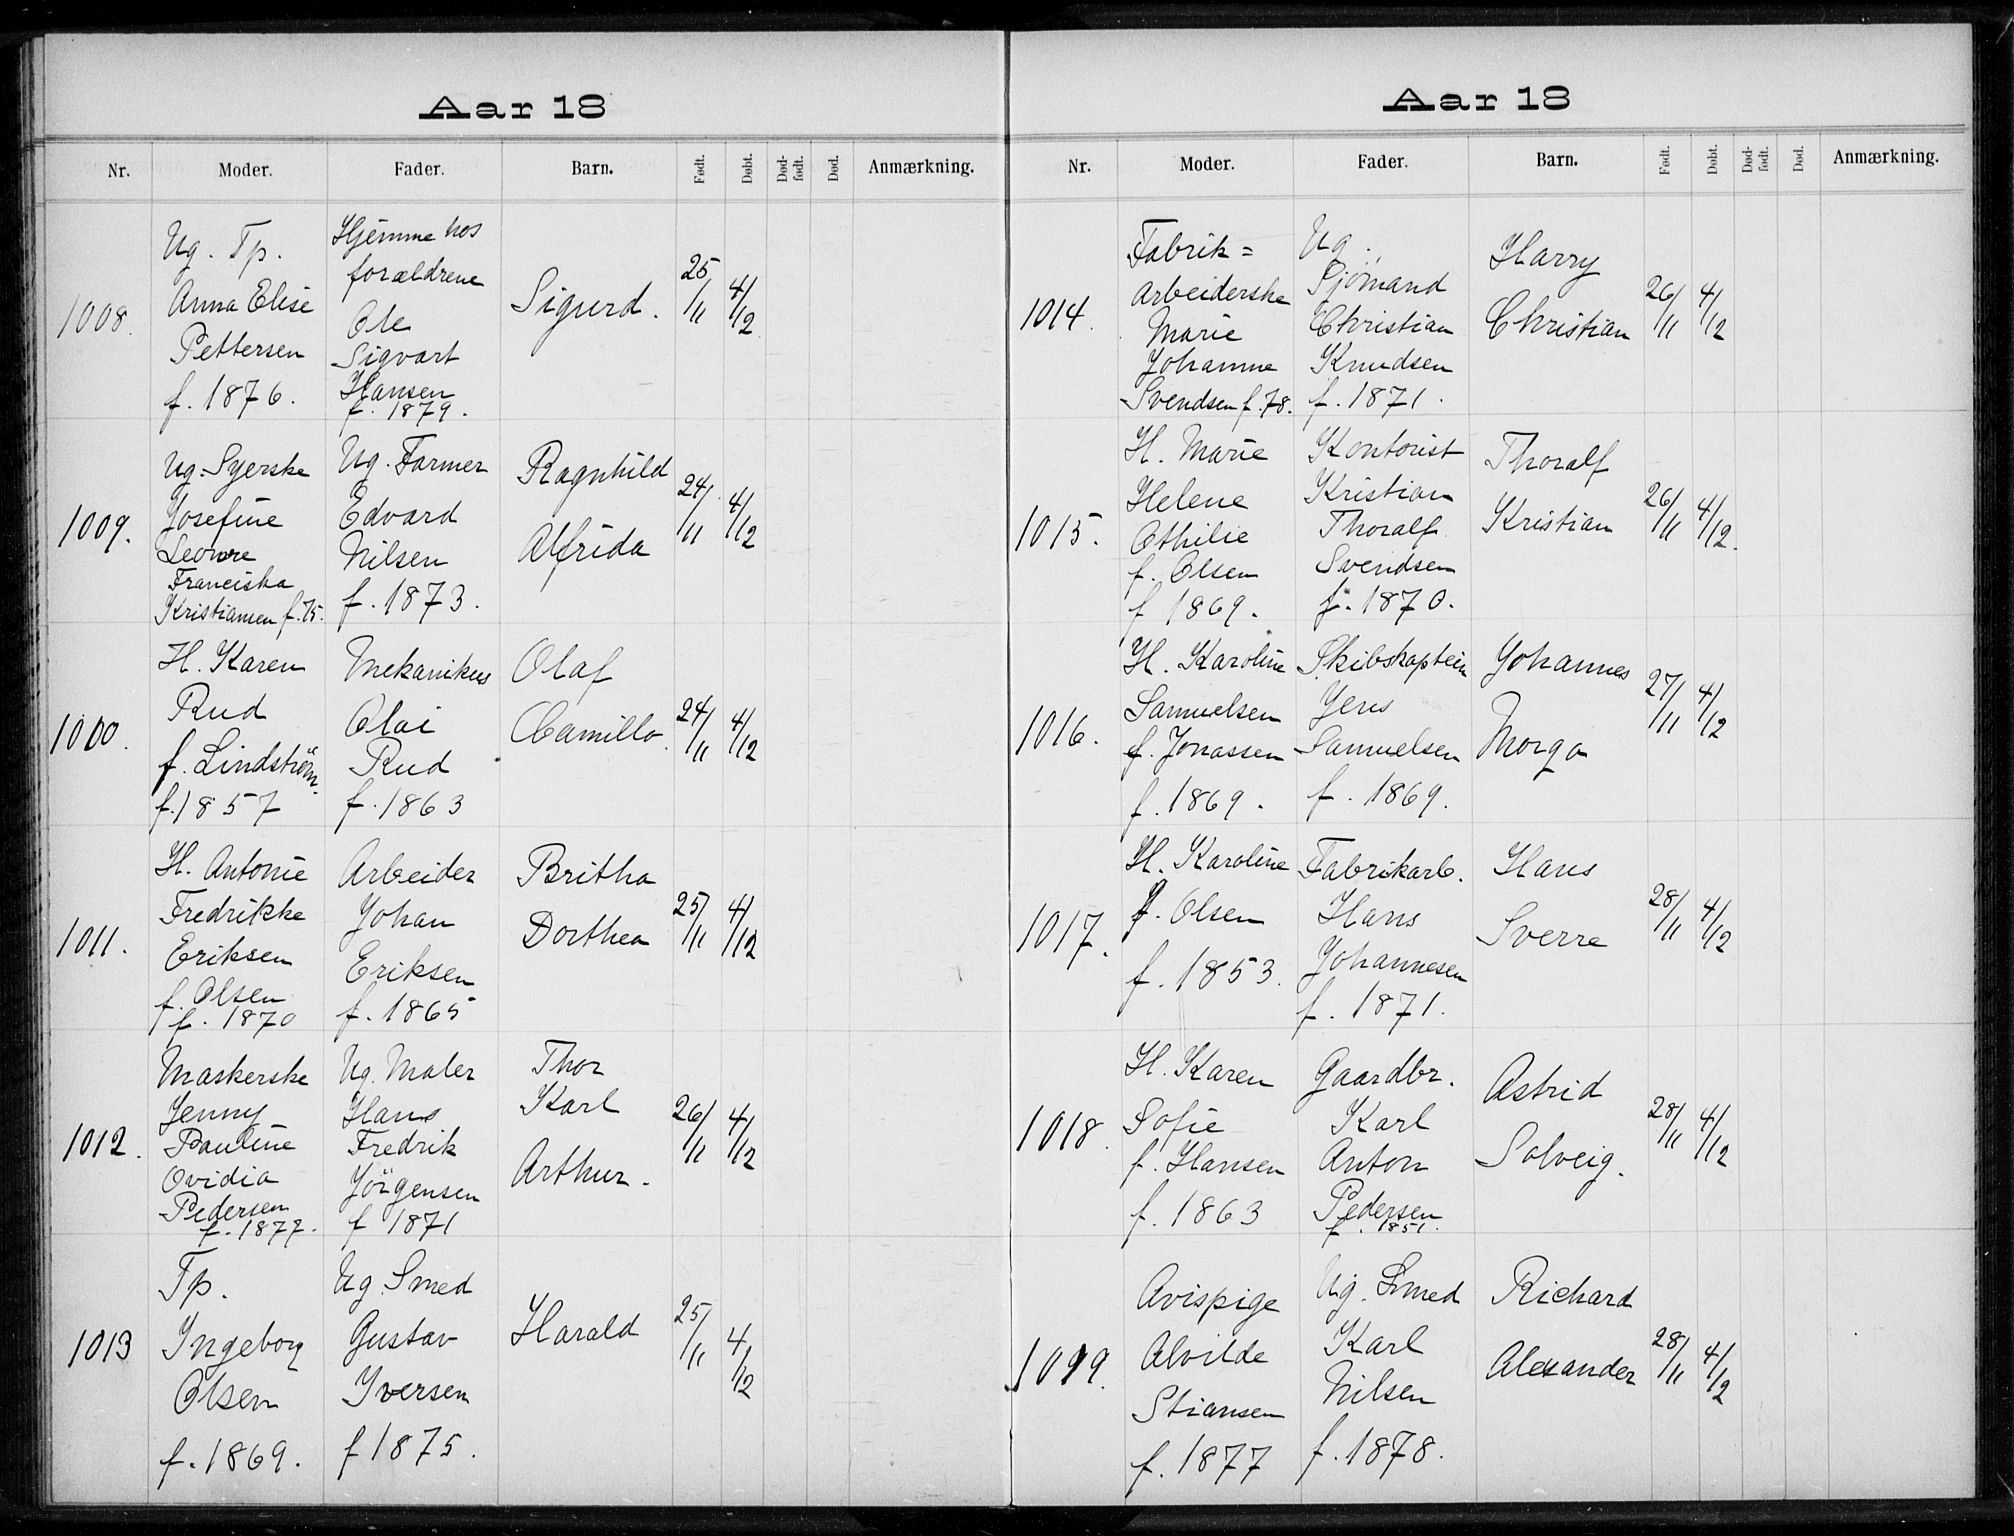 Aar 18
Nr. Moder. Fader. Barn. Født. Døbt. Død-født. Død. Anmærkning.
1008.
Ug. Tp.
Anna Elise
Pettersen
f. 1876.
Hjemme hos
forældrene
Ole
Sigvart
Hansen
f. 1879.
Sigurd.
25/11 4/12
1009.
Ug. Syerske
Josefine
Leonore
Franciska
Kristiansen f. 75.
Ug. Farmer
Edvard
Nilsen
f. 1873.
Ragnhild
Alfrida
24/11 4/12
1000.
H. Karen
Rud
f. Lindström.
f. 1857
Mekanikus
Olai
Rud
f. 1863
Olaf
Camillo.
24/11 4/12
1011.
H. Antonie
Fredrikke
Eriksen
f. Olsen
f. 1870
Arbeider
Johan
Eriksen
f. 1865
Britha
Dorthea
25/11 4/12
1012.
Maskerske
Jenny
Pauline
Ovidia
Pedersen
f. 1877.
Ug. Maler
Hans
Fredrik
Jörgensen
f 1871
Thor
Karl
Arthur.
26/11 4/12
1013
Tp.
Ingeborg
Olsen
f. 1869.
Ug. Smed
Gustav
Iversen
f 1875.
Harald
25/11 4/12
Aar 18
Nr. Moder. Fader. Barn. Født. Døbt. Død-født. Død. Anmærkning.
1014.
Fabrik=
Arbeiderske
Marie
Johanne
Svendsen f. 78.
Ug.
Sjömand
Christian
Knudsen
f. 1871.
Harry
Christian
26/11 4/12
1015.
H. Marie
Helene
Othilie
f. Olsen
f 1869.
Kontorist
Kristian
Thoralf
Svendsen
f. 1870.
Thoralf
Kristian
26/11 4/12.
1016.
H. Karoline
Samuelsen
f. Jonassen
f. 1869.
Skibskaptein
Jens
Samuelsen
f. 1869.
Johannes
27/11 4/12
1017.
H. Karoline
f. Olsen
f. 1853.
Fabrikarb.
Hans
Johannesen
f. 1871.
Hans
Sverre
28/11 4/12
1018.
H. Karen
Sofie
f. Hansen
f. 1863
Gaardbr.
Karl
Anton
Pedersen
f. 1851.
Astrid
Solveig.
28/11 4/12
1019.
Avispige
Alvilde
Stiansen
f. 1877
Ug. Smed
Karl
Nilsen
f. 1878.
Richard
Alexander
28/11 4/12